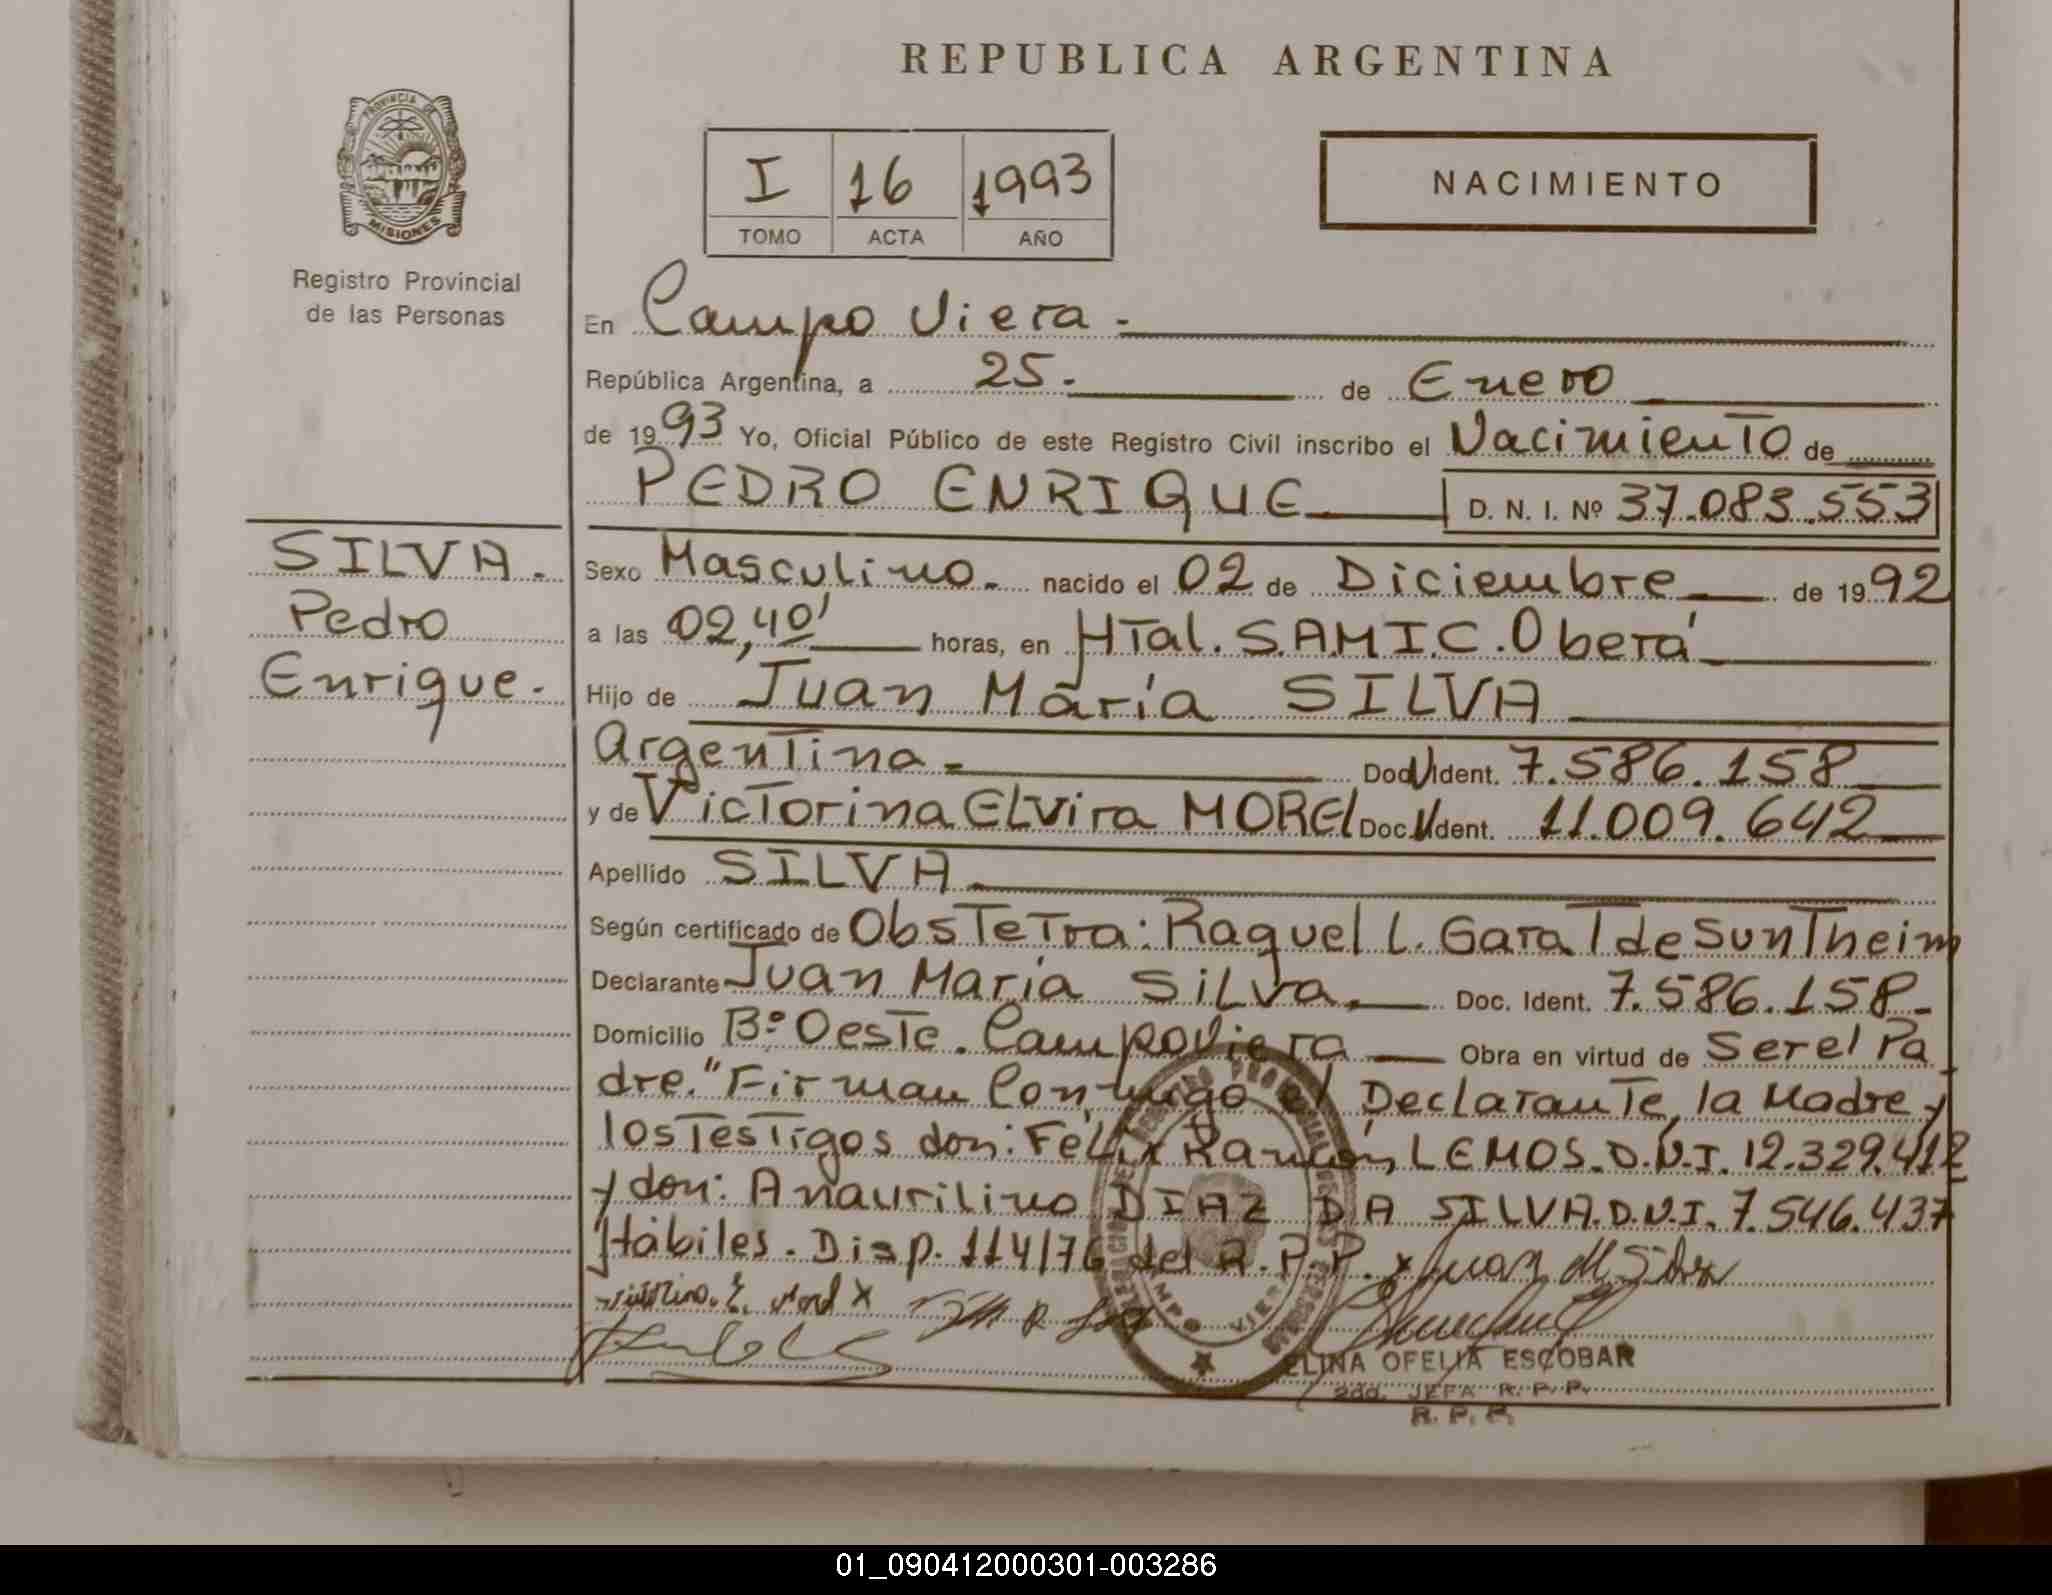 REPUBLICA ARGENTINA
PROVINCIA DE
MISIONES
Registro Provincial
de las Personas
I 16 1993
TOMO ACTA AÑO
NACIMIENTO
En Campo Viera.
República Argentina, a 25. de Enero
de 1993 Yo, Oficial Público de este Registro Civil inscribo el Nacimiento de
PEDRO ENRIQUE D. N. I. Nº 37.083.553
SILVA.
Pedro
Enrique.
Sexo Masculino. nacido el 02 de Diciembre de 1992
a las 02,40' horas, en Htal. S.A.M.I.C. Oberá
Hijo de Juan María SILVA
Argentina. Doc. Ident. 7.586.158
y de Victorina Elvira MOREL Doc. Ident. 11.009.642
Apellido SILVA
Según certificado de Obstetra: Raquel L. Garat de Suntheim
Declarante Juan María Silva. Doc. Ident. 7.586.158
Domicilio Bº Oeste. Campo Viera Obra en virtud de Ser el Pa
dre." Firman Conmigo el Declarante, la Madre y
los Testigos don: Félix Ramón LEMOS. D.N.I. 12.329.412
y don: Anaurilino DIAZ DA SILVA. D.N.I. 7.546.437
Hábiles. Disp. 114/76 del R.P.P. x Juan M Silva
ELINA OFELIA ESCOBAR
2da. JEFA R. P. P.
R. P. P.
01_090412000301-003286